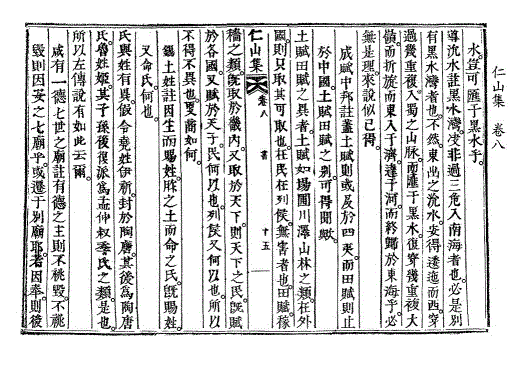 仁山集 卷八
水豈可匯于黑水乎
導沇水註黑水灣凌非過三危入南海者也必是別
有黑水灣者也不然東出之沇水安得逶迤而西穿
過幾重複入蜀之山脉而匯于黑水復穿幾重複大
嶺而折旋而東入于濟達于河而終歸於東海乎必
無是理來說似已得
成賦中邦註蓋土賦則或及於四夷而田賦則止
於中國土賦田賦之別可得聞歟
土賦田賦之具者土賦如場圃川澤山林之類在外
國則只取其可取也在民在列侯無害者也田賦稼
仁山集 卷八 書 十五
穡之類旣取於畿內又取於天下則天下之民旣賦
於各國又賦於天子民何以也列侯又何以也所以
不得不異也更商如何
錫土姓註因生而賜姓胙之土而命之氏旣賜姓
又命氏何也
氏與姓有異假令堯姓伊祈封於陶唐其後爲陶唐
氏魯姓姬其子孫後復派爲孟仲叔季氏之類是也
所以左傳說有如此云爾
咸有一德七世之廟註有德之主則不祧毀不祧
毀則因妥之七廟乎或遷于別廟耶若因奉則彼